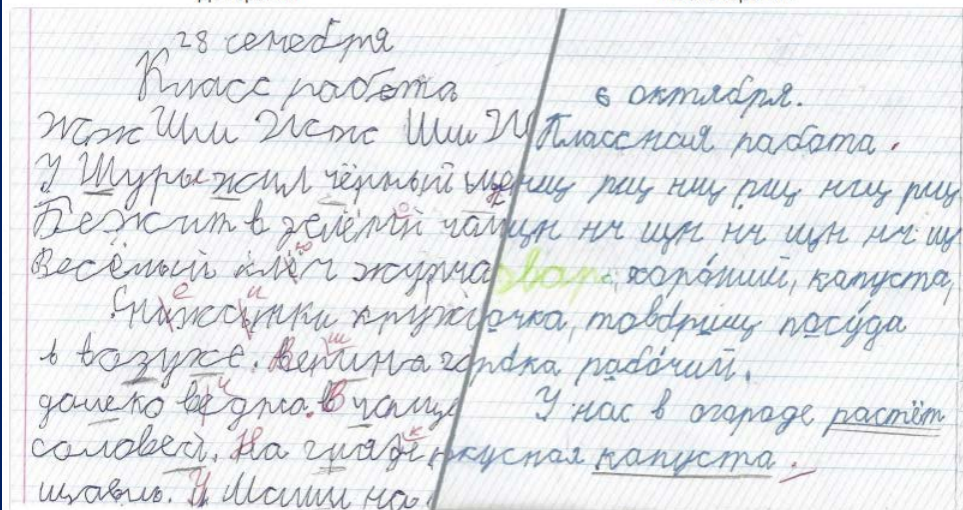 28 сенебря
Класс работа
Жж Шш Жж Шш Ж
У Шуры жил чёрный ще
Бежит в зелёный чащ
Весёлый ключ журча
Снижинки кружі
в возухе. Вершина го
далеко ведгра. В чаще
соловей. На гряде
щавль. У Маши на
6 октября.
Классная работа.
нщ рщ нщ рщ нщ рщ
щн нч щн нч щн нч щ
хороший, капуста,
очка, товарищ посуда
рабочий.
У нас в огороде растёт
вкусная капуста.